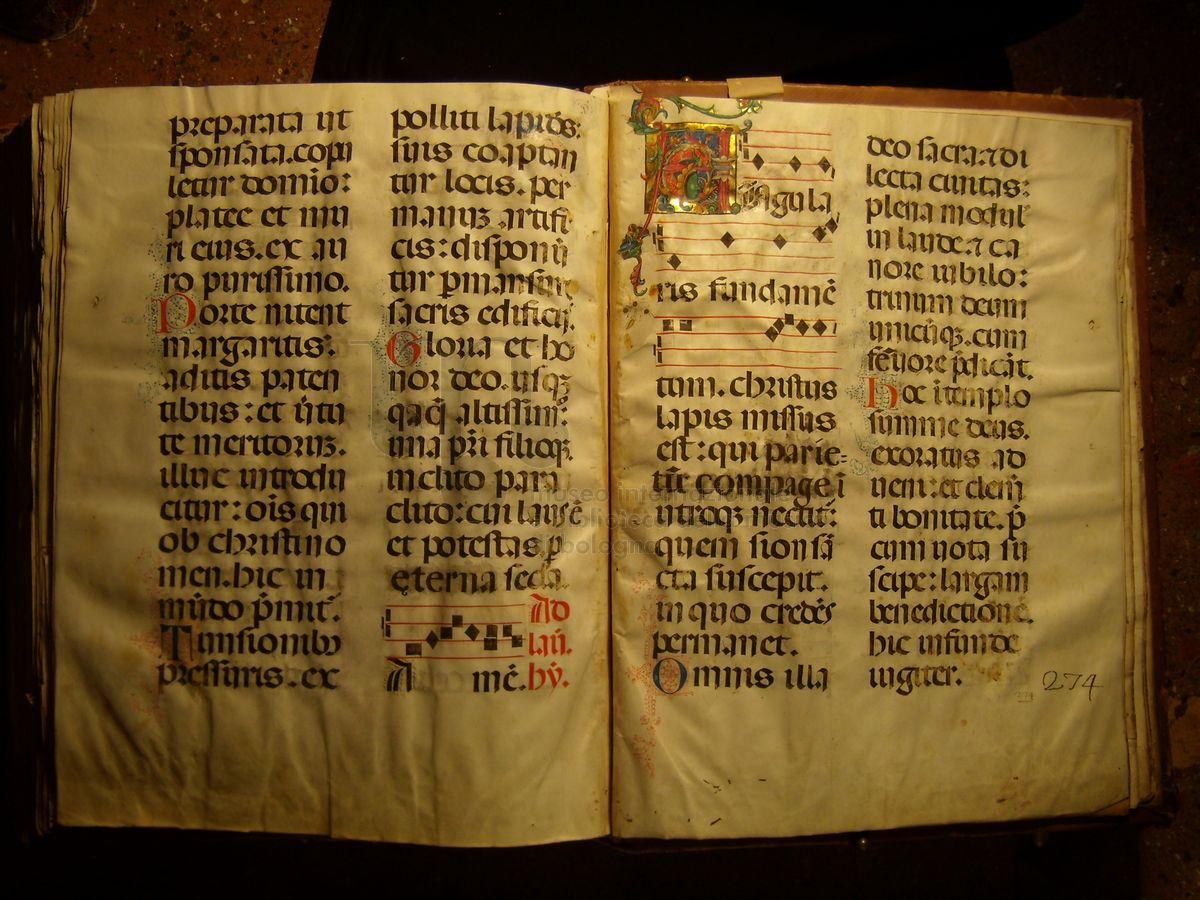 preparata ut
sponsata.copu
letur domino:
platee et mu
ri eius.ex au
ro purissimo.
Porte nitent
margaritis:
aditis paten
tibus: et v̄tu
te meritorꝝ.
illuc introdu
citur: oīs qui
ob christi no
men.hic in
mūdo p̄mit̄.
Tunsionibꝰ
pressuris.ex
politi lapides:
suis coaptan
tur locis.per
manus artifi
cis: disponū
tur ꝑmansuri
sacris edificijs.
Gloria et ho
nor deo.usqꝫ
quaq̄ altissim̄:
una pr̄i filioqꝫ
inclito para
clito: cui laus ē
et potestas ꝑ
eterna secla.
Ad
lau.
A mē. hȳ.
Angula
ris fundamē
tum. christus
lapis missus
est: qui parie=
tū compage ī
utroqꝫ nectit̄:
quem sion sā
cta suscepit.
in quo credēs
permanet.
Omnis illa
deo sacra:⁊ di
lecta ciuitas:
plena modul̄
in laude: ⁊ ca
nore iubilo:
trinum deum
unicūqꝫ. cum
feruore p̄dicāt.
Hoc ī templo
summe deus.
exoratus ad
ueni: et clemē
ti bonitate. p̄
cum uota su
scipe: largam
benedictionē.
hic infunde
iugiter.
274
museo internazionale
e biblioteca della musica
di bologna